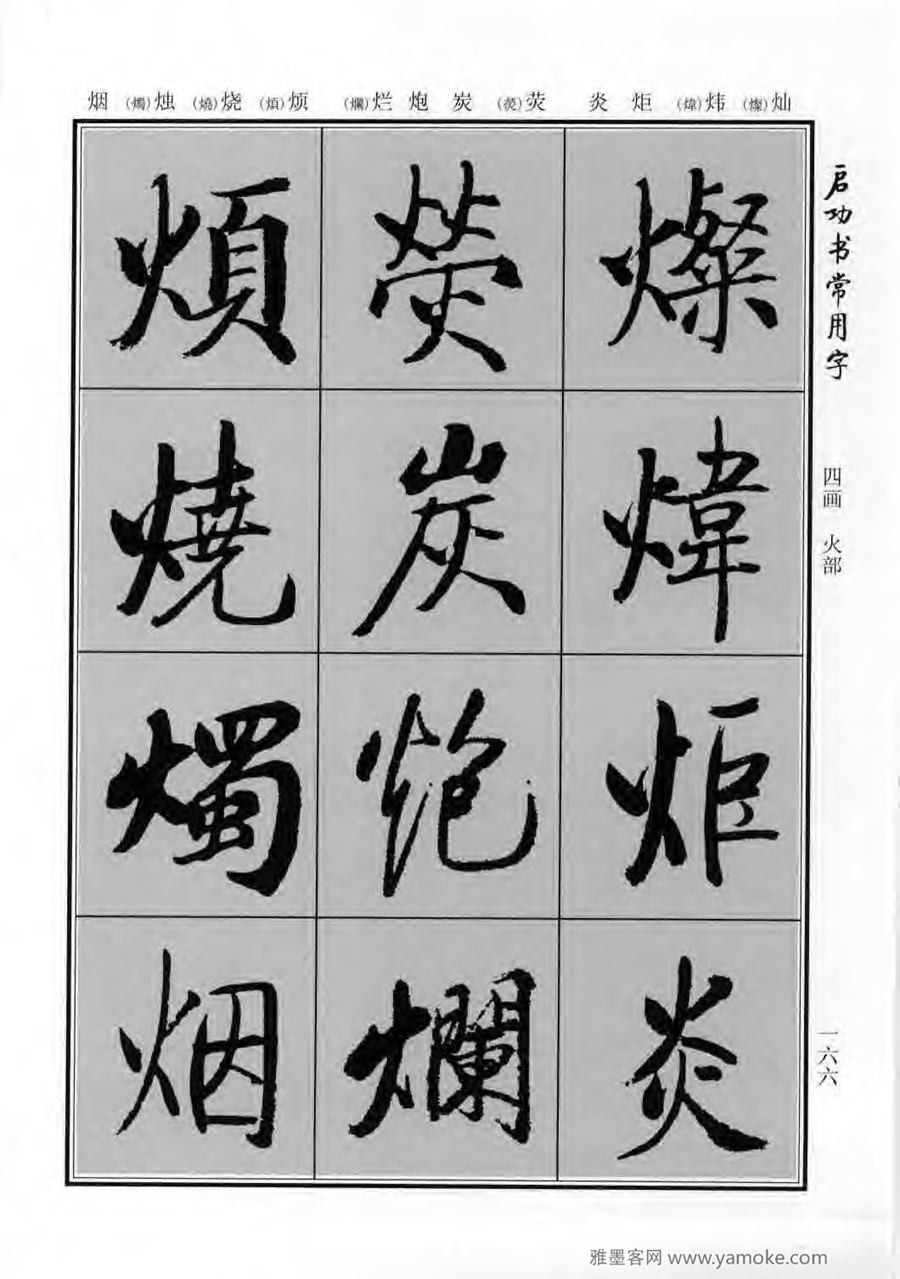 烟 (燭)烛 (燒)烧 (煩)烦 (爛)烂 炮 炭 (熒)荧 炎 炬 (煒)炜 (燦)灿
启功书常用字
四画 火部
一六六
燦
煒
炬
炎
熒
炭
炮
爛
煩
燒
燭
烟
雅墨客网 www.yamoke.com